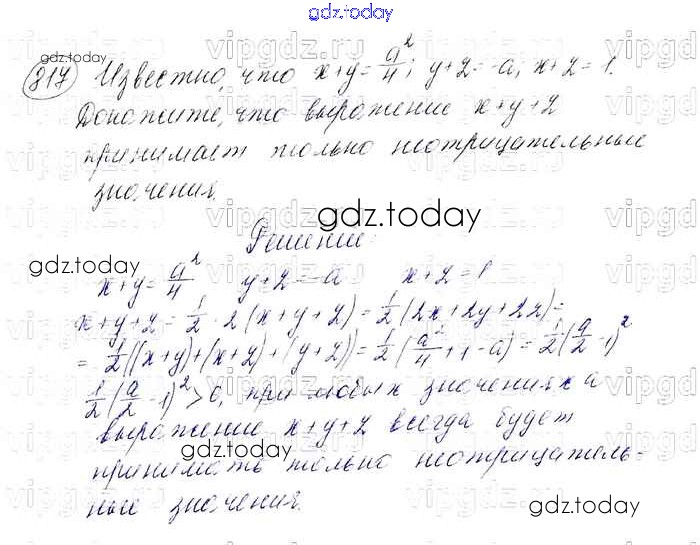 gdz.today
817 Известно, что x+y=a²/4; y+z=-a; x+z=1.
Докажите, что выражение x+y+z
принимает только неотрицательные
значения.
gdz.today
Решение:
gdz.today
x+y=a²/4 y+z=-a x+z=1
x+y+z=1/2·2(x+y+z)=1/2(2x+2y+2z)=
=1/2((x+y)+(x+z)+(y+z))=1/2(a²/4+1-a)=1/2(a/2-1)²
1/2(a/2-1)²>0, при любых значениях a
выражение x+y+z всегда будет
gdz.today
принимать только неотрицатель-
ные значения.
gdz.today
vipgdz.ru